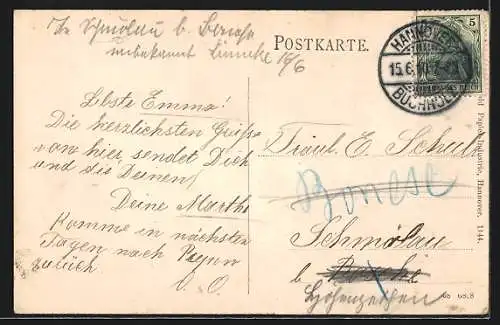 In Schmölau b.
unbekannt 16/6
POSTKARTE.
HANNOVER
15.6.
BUCHHOLZ
5
Lbste Emma!
Die herzlichsten Grüsse
von hier, sendet Dich
und die Deinen
Deine Martha
Komme in nächsten
Tagen nach
zurück
Fräul. E. Schulz
Bonese
Schmölau
b.
Papier-Industrie, Hannover. 1144.